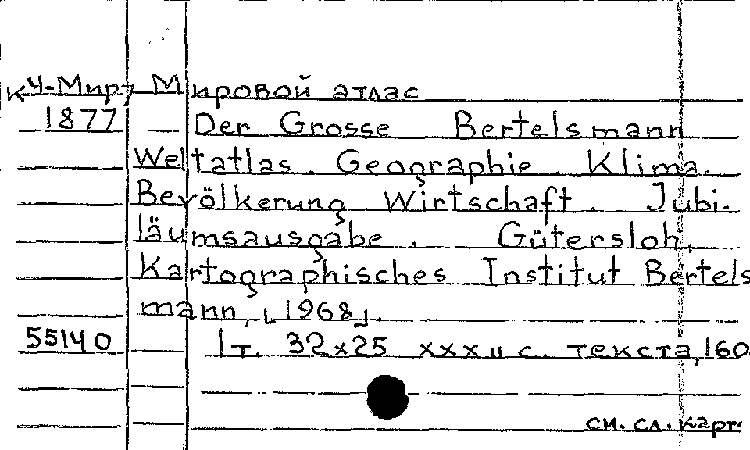 К Ч-Мир, Мировой атлас
1877 Der Grosse Bertelsmann
Weltatlas. Geographie. Klima.
Bevölkerung Wirtschaft. Jubi-
läumsausgabe. Gütersloh,
Kartographisches Institut Bertels
mann, [1968].
55140 1 т. 32x25 xxx и с. текста, 160
см. сл. карт